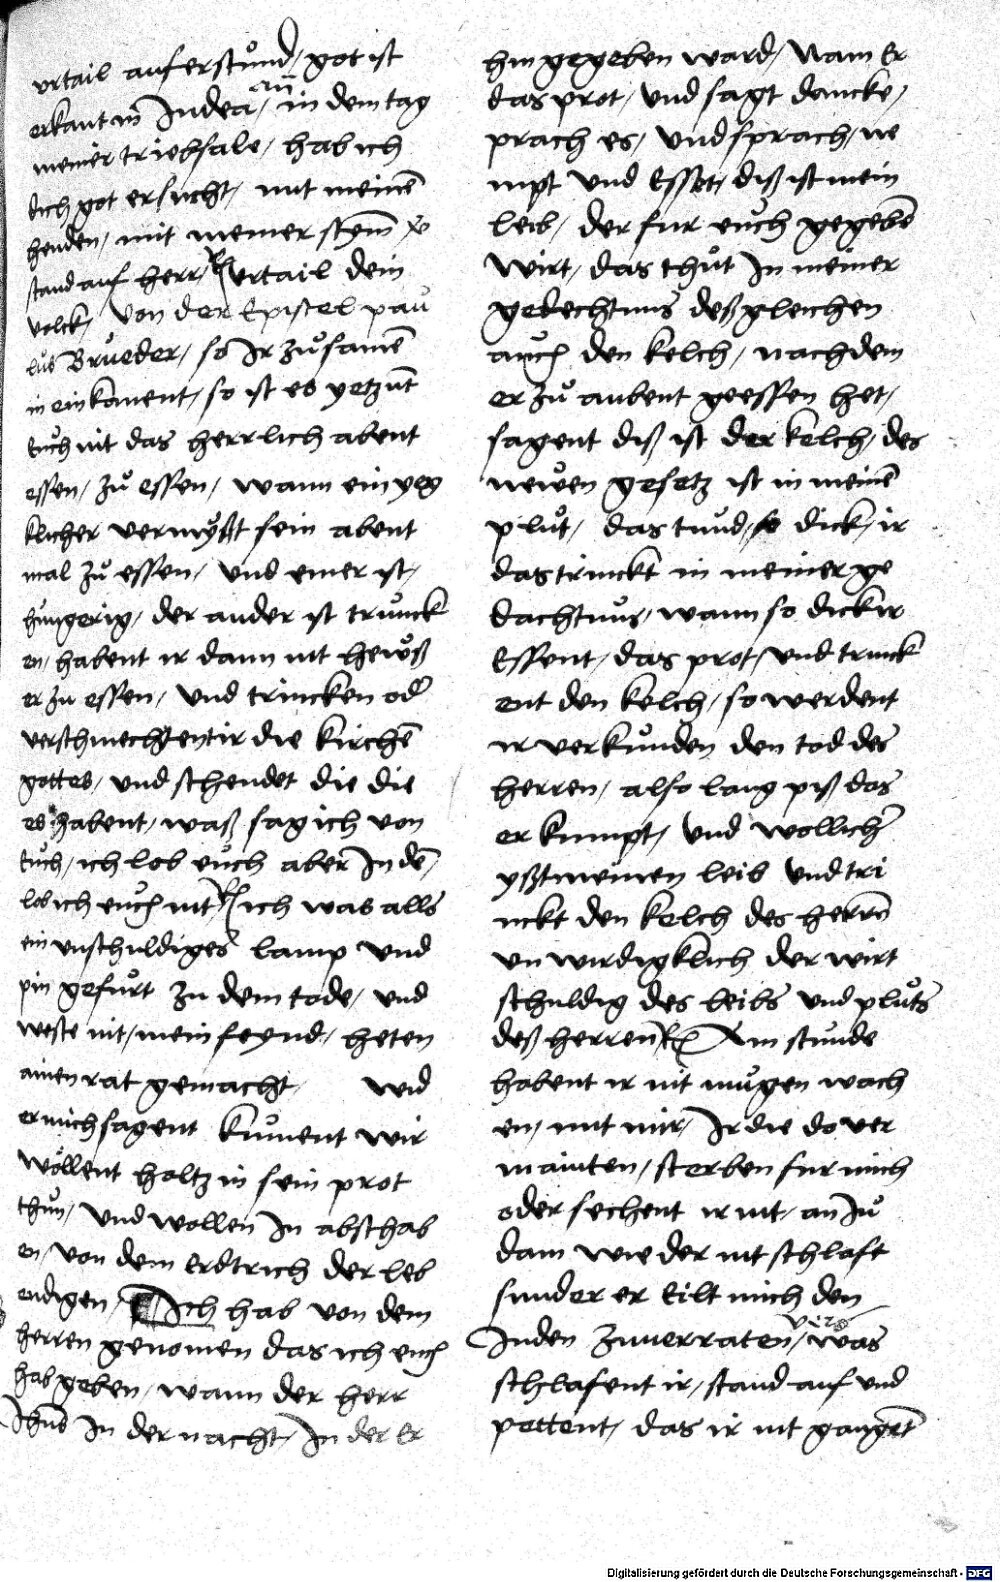 vrtail auferstuͦnd / got ist
erkant in Judea / in dem tag
an
meiner triebsale / hab ich
dich got ersucht / mit meinē
henden / mit meiner stym̄
stand auf herr / vrtail dein
volck / Von der Epistel pau
lus Brueder / so Ir zuͦsamē
in ein koment / so ist es yetzūt
Euch nit das herrlich abent
essen / zuͦ essen / wann ein yeg
klicher vermyßt sein abent
mal zuͦ essen / vnd einer ist /
hungerig / der ander ist trunck
en / habent ir dann nit hewß
er zu essen / vnd trincken odr̄
verschmechtent ir die kirchē
gottes / vnd schendet die die
es habent / waß sag ich von
Euch / ich lob euch aber In dē /
lob ich euch nit ich was alls
ein vnschuldiges lamp vnd
pin gefuͦrt zu dem tode / vnd
weste nit / mein feynd / heten
ainen rat gemacht / wid
er mich sagent kument wir
woͤllent holtz in sein prot
thuͦn / vnd wollen In abschab
en / von dem Erdtrich der leb
endigen / Ich hab von dem
herren genomen das ich euch
hab geben / wann der herr
Jhūs In der nacht / In der Er
hin gegeben ward / Nam Er
das prot / vnd sagt dancke /
prach es / vnd sprach / ne
mpt vnd Esset / diß ist mein
leib / der fur euch gegebē
wirt / das thuͦt In meiner
gedechtnus deßgleichen
auch den kelch / nach dem
er zuͦ aubent geessen het /
sagent diß ist der kelch / des
newen gesetz ist in meinē
pluͦt / das tund / so dick / ir
das trinckt in meiner ge
dachtnus / wann so dick ir
Essent / das prot / vnd trinck
ent den kelch / so werdent
ir verkunden den tod des
herren / also lang piß das
er kumpt / vnd wollicher
yßt meinen leib vnd tri
nckt den kelch des herrn
vnwirdigklich der wirt
schuldig des leibs vnd pluͦts
deß herren Ain stunde
habent ir nit mugen wach
en / mit mir / Ir die do ver
mainten / sterben fur mich
oder sechent ir nit / an Ju
dam wie der nit schlaft
sunder er Eilt mich den
Juden zuuerraten / was
vers
schlafent ir / stand auf vnd
pettent / das ir nit gangēt
Digitalisierung gefördert durch die Deutsche Forschungsgemeinschaft - DFG